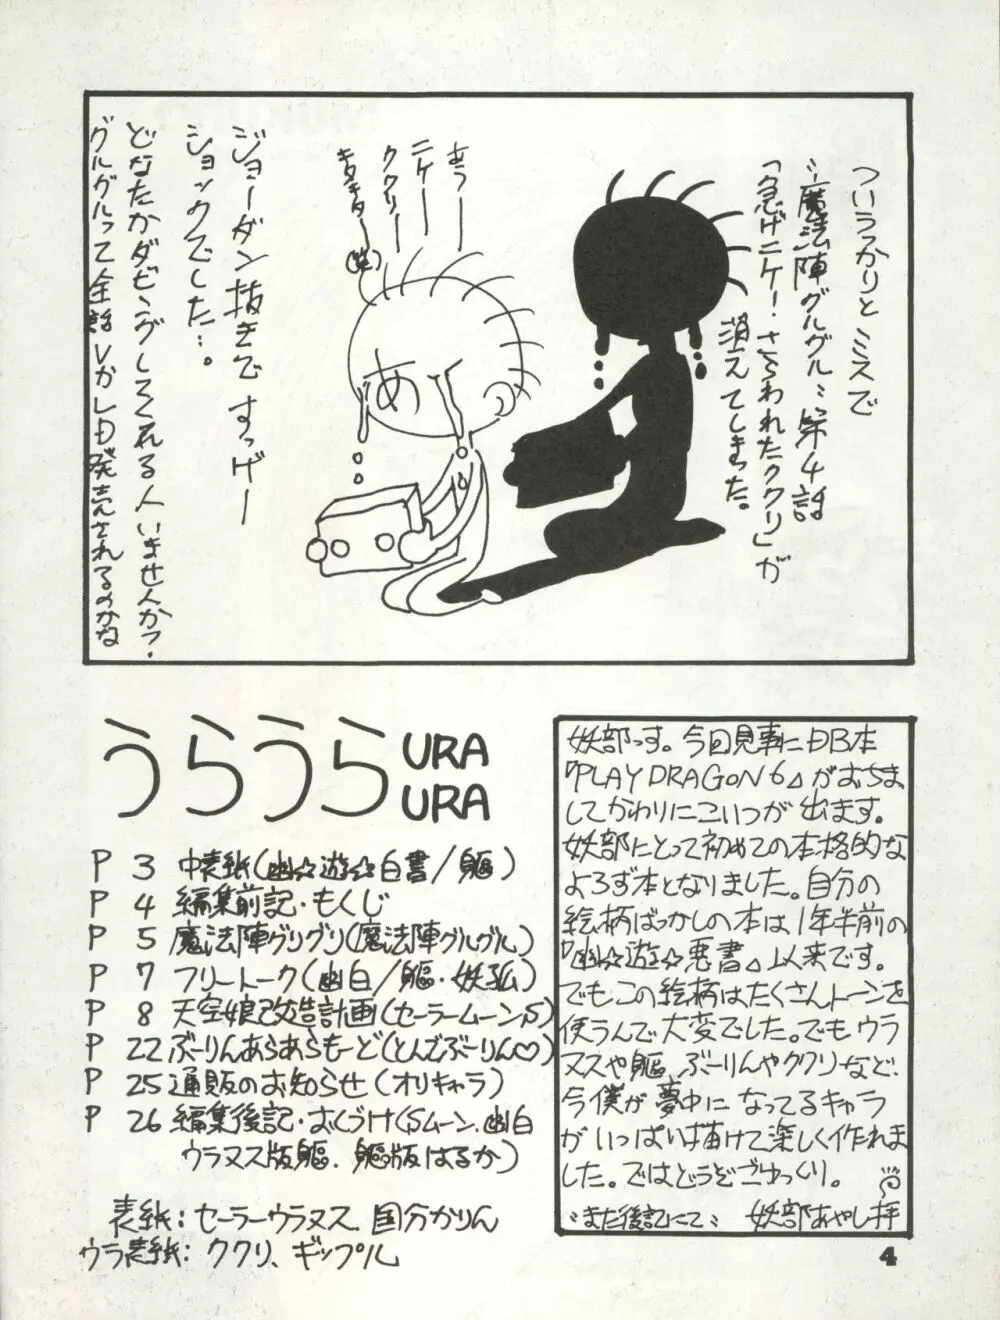 ついうっかりとミスで
〝魔法陣グルグル〟第4話
「急げニケ！さらわれたククリ」が
消えてしまった。
あうー
ニケー
ククリー
キタキター
(笑)
ジョーダン抜きですっげー
ショックでした…。
どなたかダビングしてくれる人いませんか？
グルグルって全話VかLD発売されるのかな
うらうら
URA
URA
P 3 中表紙(幽☆遊☆白書/軀)
P 4 編集前記・もくじ
P 5 魔法陣グリグリ(魔法陣グルグル)
P 7 フリートーク(幽白/軀・妖狐)
P 8 天空娘改造計画(セーラームーンS)
P 22 ぶーりんあらあらもーど(とんでぶーりん♡)
P 25 通販のお知らせ(オリキャラ)
P 26 編集後記・おくづけ(Sムーン.幽白
ウラヌス版軀.軀版はるか)
表紙：セーラーウラヌス.国分かりん
ウラ表紙：ククリ、ギップル
妖部っす。今回見事にDB本
『PLAY DRAGON 6』がおちま
してかわりにこいつが出ます。
妖部にとって初めての本格的な
よろず本となりました。自分の
絵柄ばっかしの本は1年半前の
『幽☆遊☆悪書』以来です。
でもこの絵柄はたくさんトーンを
使うんで大変でした。でもウラ
ヌスや軀、ぶーりんやククリなど.
今僕が夢中になってるキャラ
がいっぱい描けて楽しく作れま
した。ではどうぞごゆっくり。
〝また後記にて〟 妖部あやし拝
4